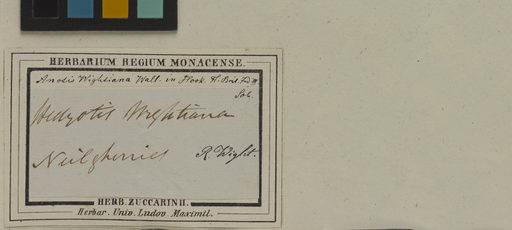 HERBARIUM REGIUM MONACENSE.
Anotis Wightiana Wall. in Hook. Fl. Brit. Ind. III
Hedyotis Wightiana
Neilgherries R Wight.
HERB. ZUCCARINII.
Herbar. Univ. Ludov. Maximil.